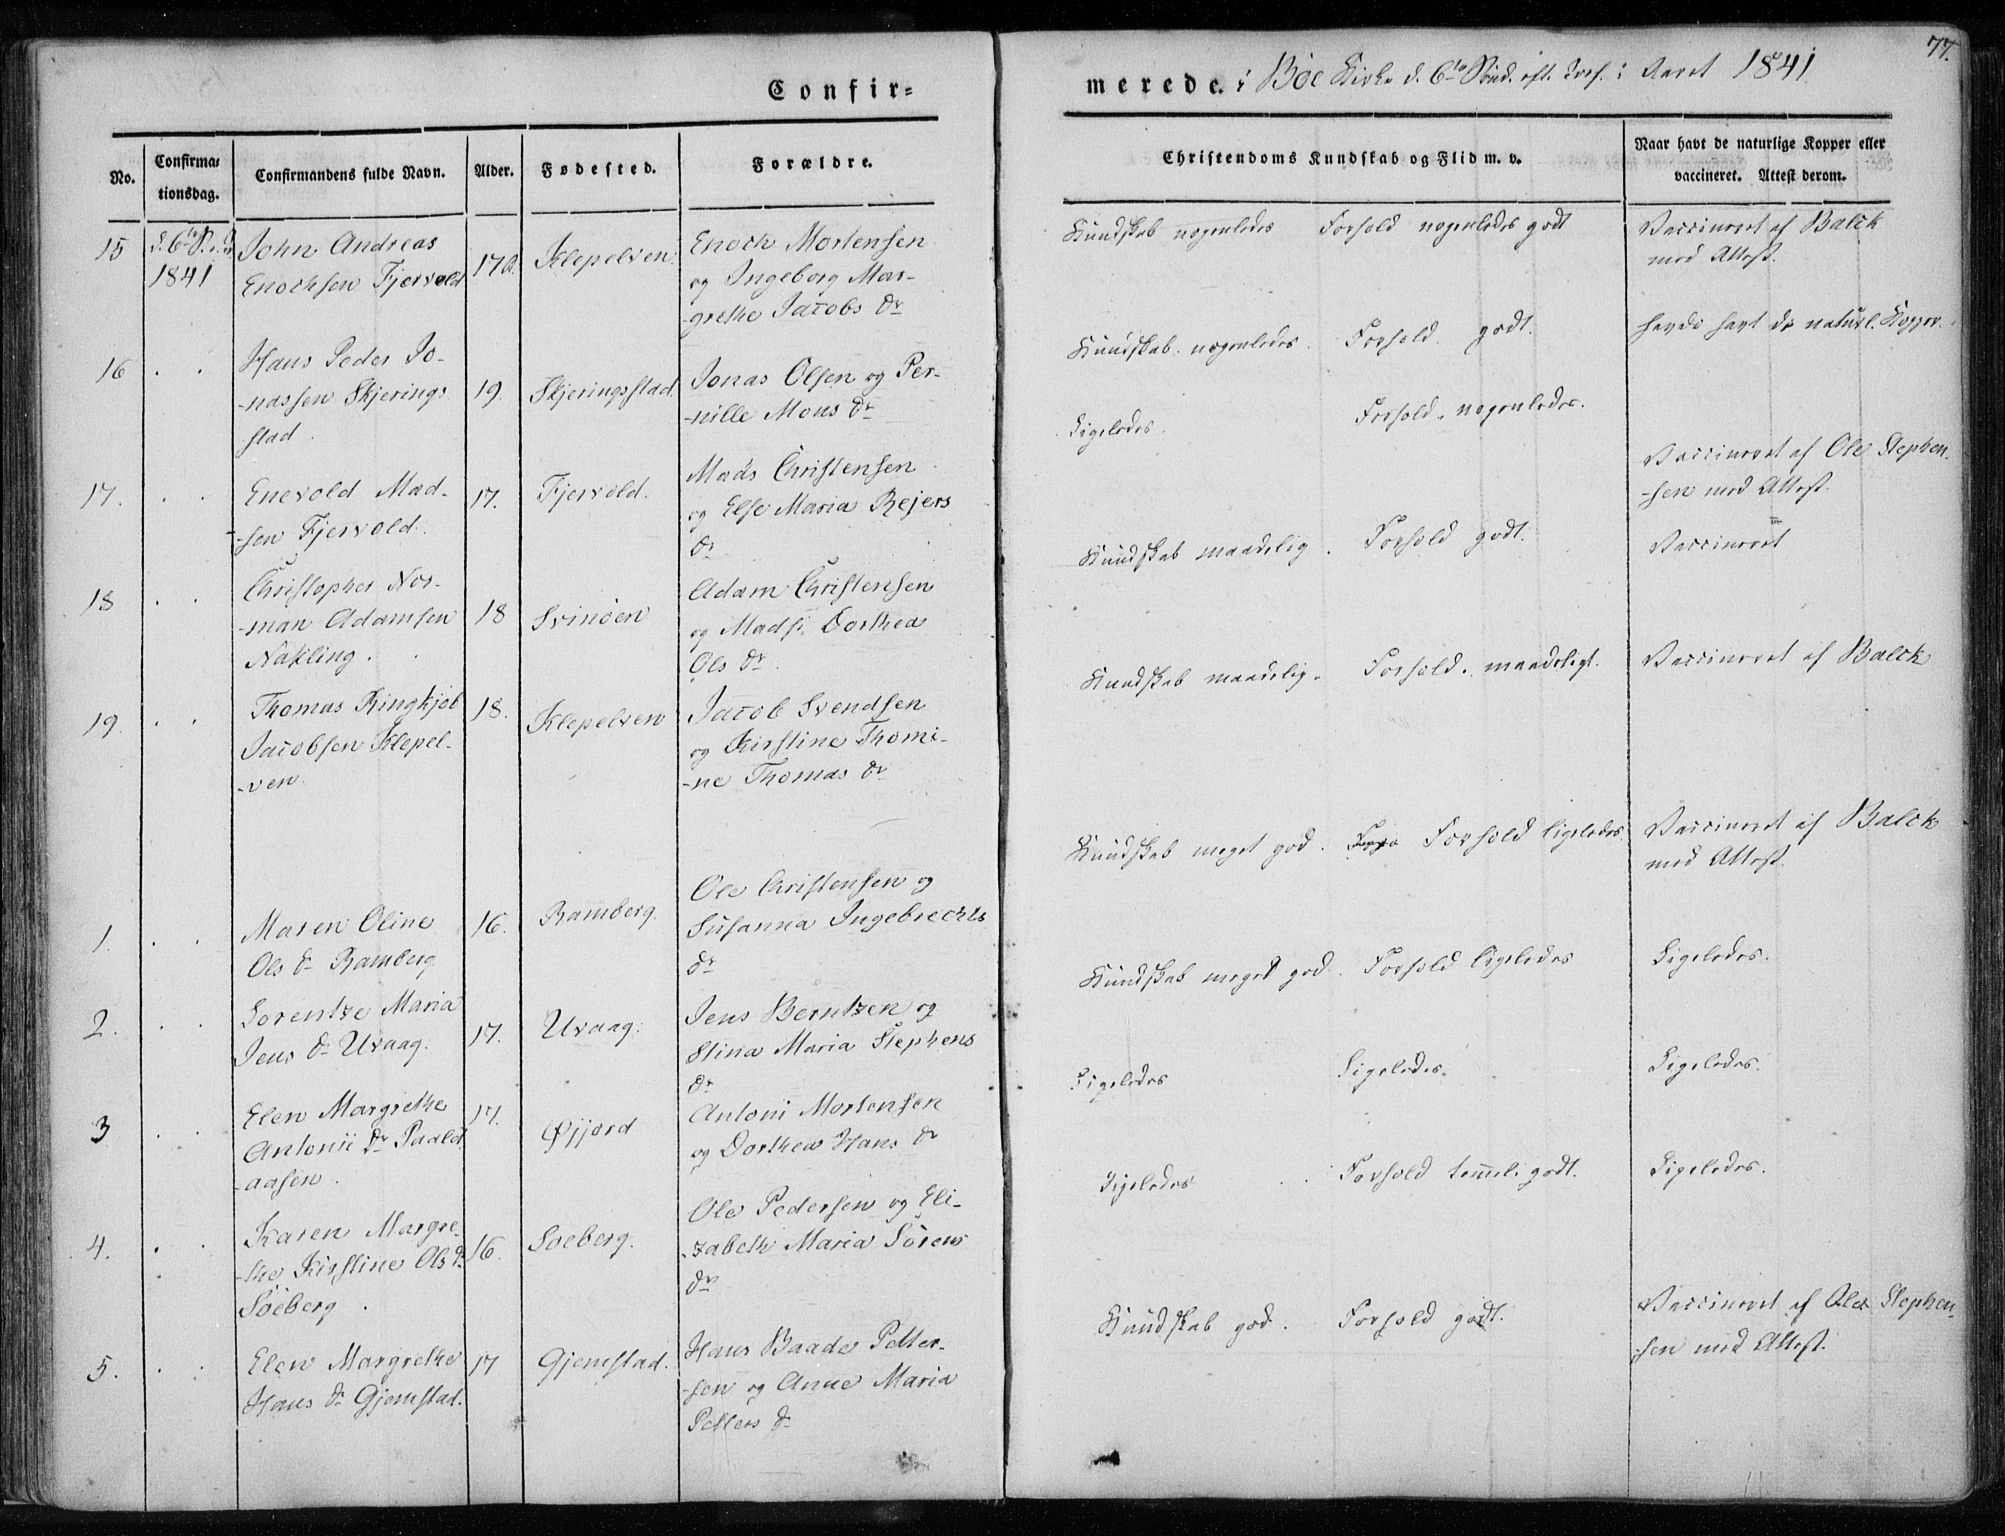 77.
Confir=
merede. i Böe Kirke d. 6te Sönd. eft. Tref. i Aaret 1841
No.
Confirma=
tionsdag.
Confirmandens fulde Navn.
Alder.
Fødested.
Forældre.
Christendoms Kundskab og Flid m. v.
Naar havt de naturlige Kopper eller
vaccineret. Attest derom.
15
1841
John Andreas
Enochsen Fjervold
17
Klepelven
Enoch Mortensen
og Ingeborg Mar-
grethe Jacobs Dr
Kundskab nogenledes Forhold nogenledes godt
Vaccineret af Balck
med Attest.
16
Hans Peder Jo-
-nassen Skjerings
stad.
19.
Skjeringsstad
Jonas Olsen og Per-
-nille Mons Dr
Kundskab nogenledes. Forhold godt.
havde havt de naturl. Kopper.
17.
Enevold Mad-
-sen Fjervold.
17.
Fjervold.
Mads Christensen
og Else Maria Rejers
Dr
Ligeledes. Forhold nogenledes.
Vaccineret af Ole Stephen-
-sen med Attest.
18
Christopher Nor-
-man Adamsen
Nakling.
18
Svinöen
Adam Christensen
og Madsi Dorthea
Ols Dr.
Kundskab maadelig. Forhold godt.
Vaccineret
19.
Thomas Ringkjöb
Jacobsen Klepel-
-ven
18.
Klepelven
Jacob Svendsen
og Kirstine Thomi-
-ne Thomas Dr
Kundskab maadelig. Forhold maadeligt.
Vaccineret af Balck
1.
Maren Oline
Ols Dr Ramberg
16.
Ramberg.
Ole Christensen og
Susanna Ingebrechts
Dr
Kundskab meget god. Forhold ligeledes
Vaccineret af Balck
med Attest.
2.
Lorentze Maria
Jens Dr Uvaag.
17.
Uvaag.
Jens Berntzen og
Stina Maria Stephens
Dr
Kundskab meget god. Forhold ligeledes
Ligeledes.
3
Elen Margrethe
Antonii Dr Paald
-aasen.
17.
Øjjord
Antoni Mortensen
og Dorthea Hans Dr
Ligeledes Ligeledes.
Ligeledes.
4.
Karen Margre-
-the Kirstine Ols Dr
Söeberg.
16.
Soeberg.
Ole Pedersen og Eli-
-zabeth Maria Sörens
Dr
Ligeledes Forhold temeli godt.
Ligeledes.
5.
Elen Margrethe
Hans Dr Gjemstad.
17
Gjemstad.
Hans Baade Petter-
-sen og Anne Maria
Petters Dr
Kundskab god. Forhold godt.
Vaccineret af Ole Stephen-
-sen med Attest.